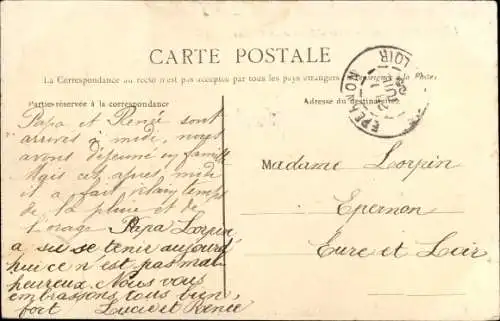 CARTE POSTALE
La Correspondance au recto n'est pas acceptée par tous les pays étrangers
Partie réservée à la correspondance
Adresse du destinataire
EPERNON
LOIR
Papa et Renée sont
arrivés à midi, nous
avons déjeuné en famille
Mais cet après midi
il a fait vilain temps
de la pluie et de
l'orage Papa Lorpin
a su se tenir aujourd'
hui ce n'est pas mal
heureux. Nous vous
embrassons tous bien
fort Lucie et Renée
Madame Lorpin
Epernon
Eure et Loir